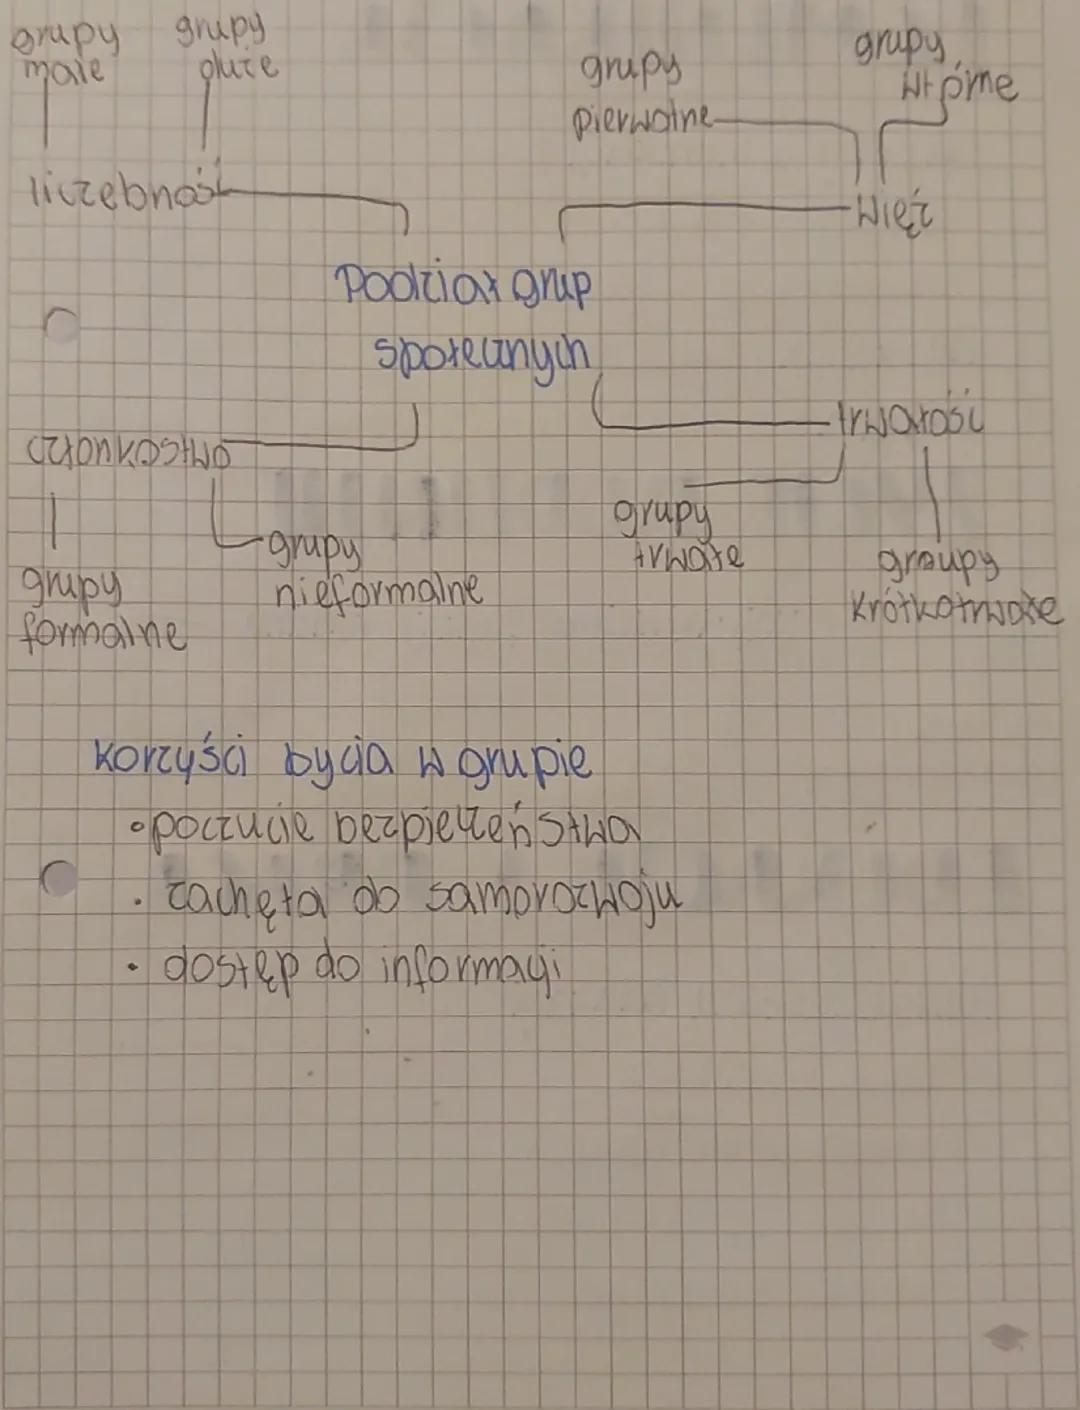 grupy
małe
grupy
duże
grupy
pierwotne
grupy
wtórne
liczebność
Więź
Podział grup
społecznych
członkostwo
trwałość
grupy
formalne
grupy
nieformalne
grupy
trwałe
groupy
krótkotrwałe
korzyści bycia w grupie
• poczucie bezpieczeństwa
• zachęta do samorozwoju
• dostęp do informacji